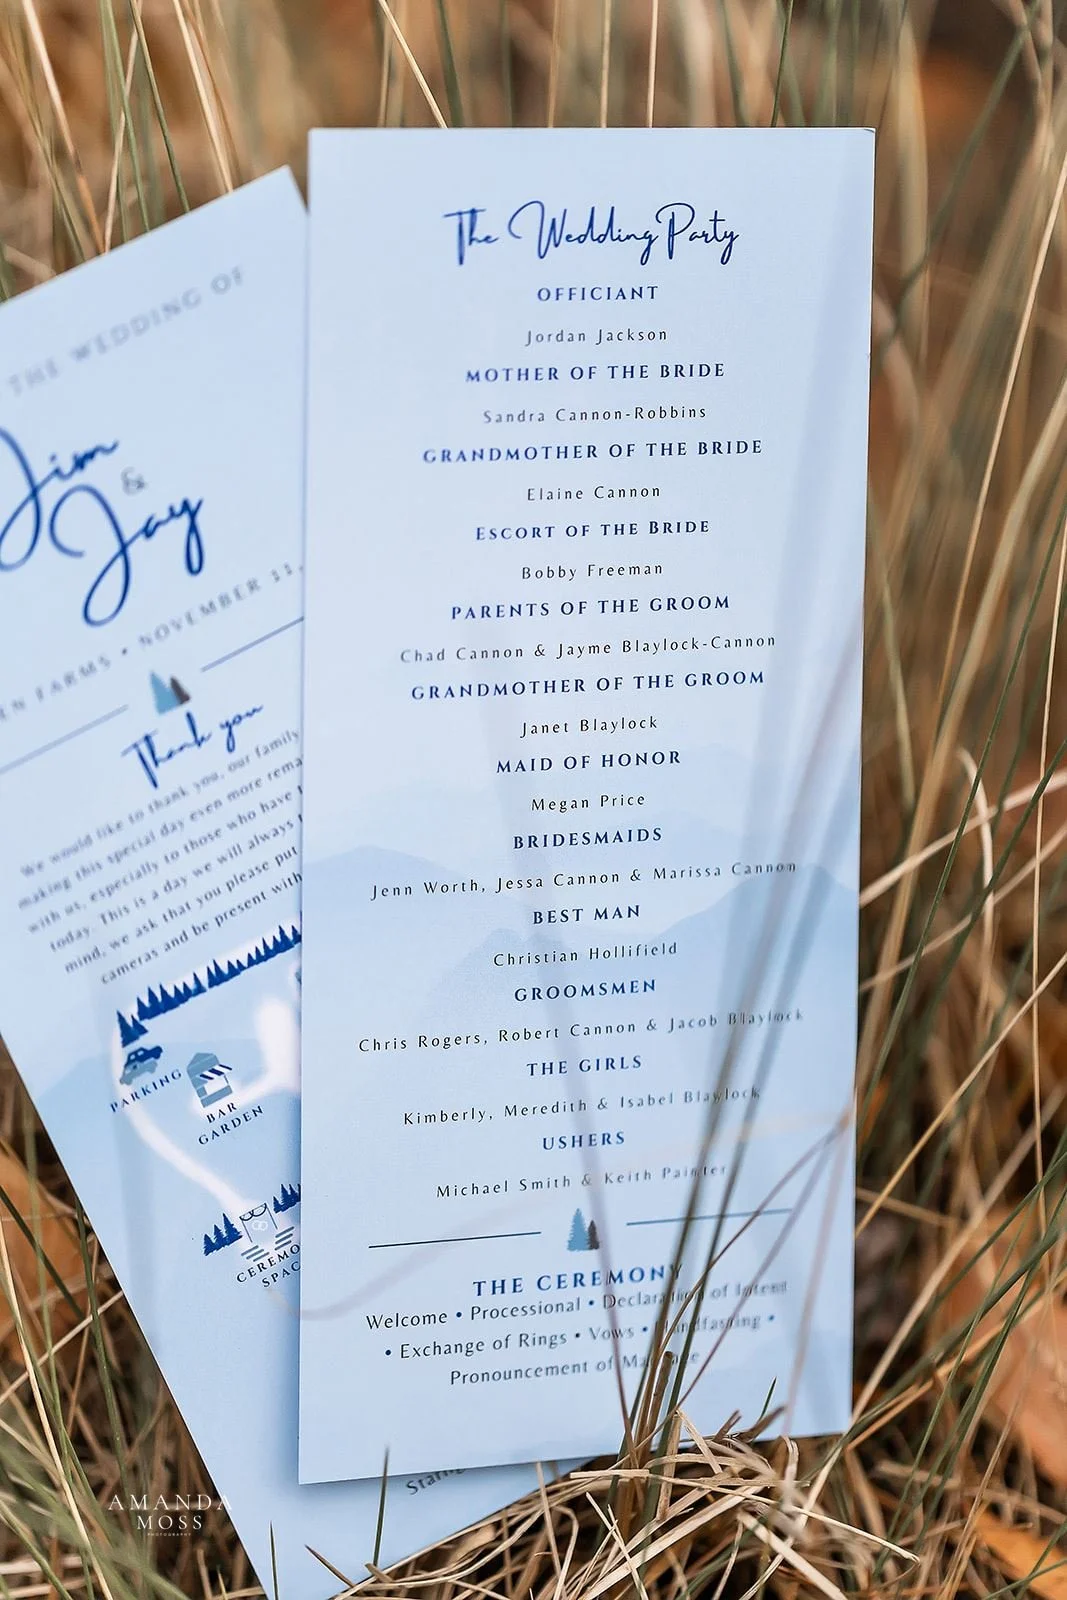 THE WEDDING OF
Jim
&
Jay
FARMS • NOVEMBER 11,
Thank you
We would like to thank you, our family
making this special day even more
with us, especially to those who have
today. This is a day we will always
mind, we ask that you please put
cameras and be present with
PARKING
BAR
GARDEN
The Wedding Party
OFFICIANT
Jordan Jackson
MOTHER OF THE BRIDE
Sandra Cannon-Robbins
GRANDMOTHER OF THE BRIDE
Elaine Cannon
ESCORT OF THE BRIDE
Bobby Freeman
PARENTS OF THE GROOM
Chad Cannon & Jayme Blaylock-Cannon
GRANDMOTHER OF THE GROOM
Janet Blaylock
MAID OF HONOR
Megan Price
BRIDESMAIDS
Jenn Worth, Jessa Cannon & Marissa Cannon
BEST MAN
Christian Hollifield
GROOMSMEN
Chris Rogers, Robert Cannon & Jacob Blaylock
THE GIRLS
Kimberly, Meredith & Isabel Blaylock
USHERS
Michael Smith & Keith Painter
THE CEREMONY
Welcome • Processional • Declaration of Intent
• Exchange of Rings • Vows • Handfasting •
Pronouncement of Marriage
AMANDA
MOSS
PHOTOGRAPHY